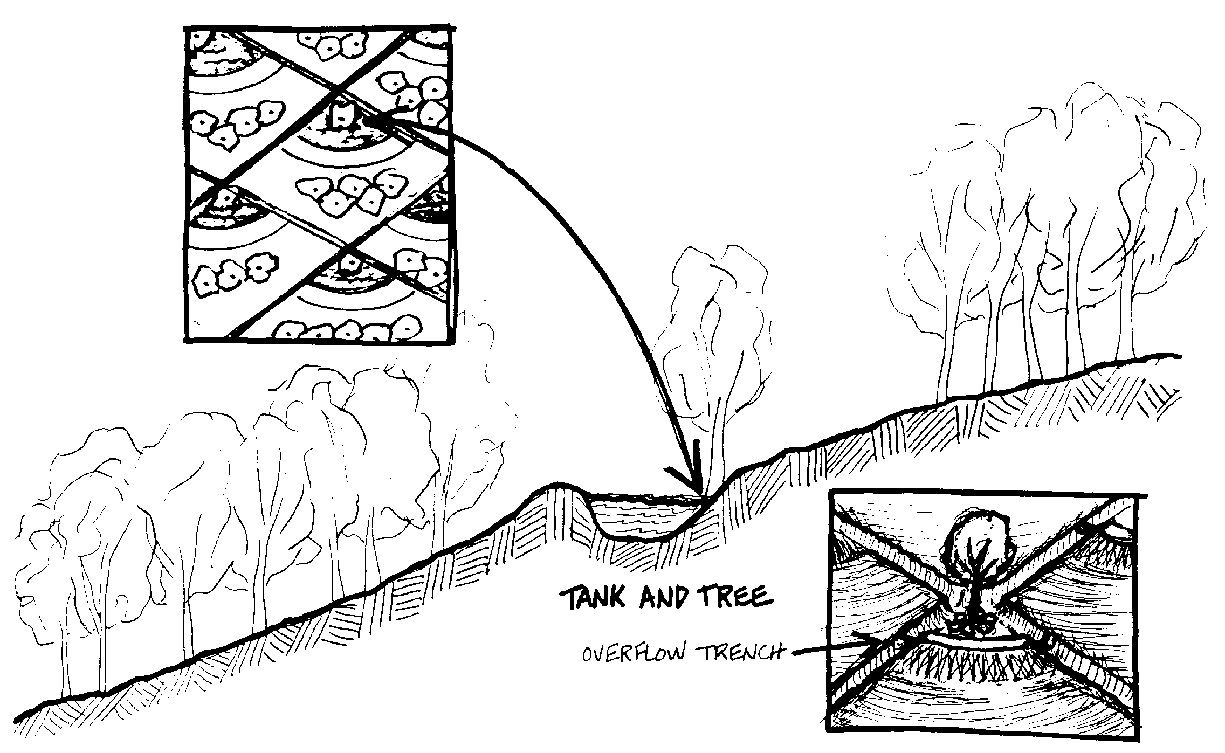 TANK AND TREE
OVERFLOW TRENCH